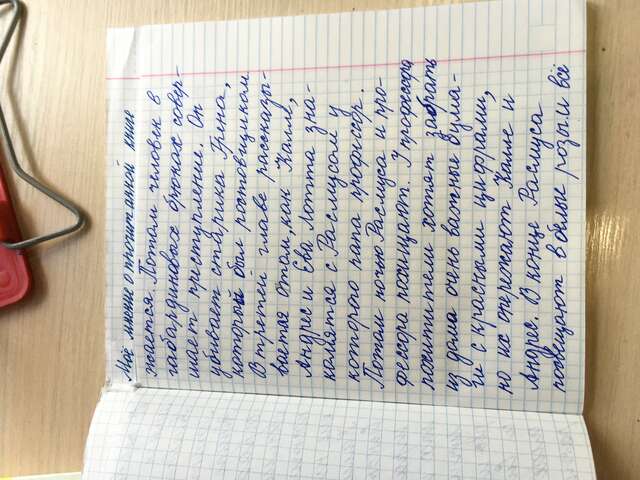 Моё мнение о прочитанной книге
жается. Потом человек в
габардиновых брюках совер-
шает преступление. Он
убивает старика Грена,
который был ростовщиком
В третей главе рассказы-
вается о том, как Калле,
Андрес и Ева Лотта зна-
комятся с Расмусом у
которого папа професор.
Потом ночью Расмуса и про-
фессора похищают. У профессора
похитители хотят забрать
из дома очень важные бума-
ги с красными цифрами,
но их опережают Калле и
Андрес. В конце Расмуса
посвещают в белые розы и всё